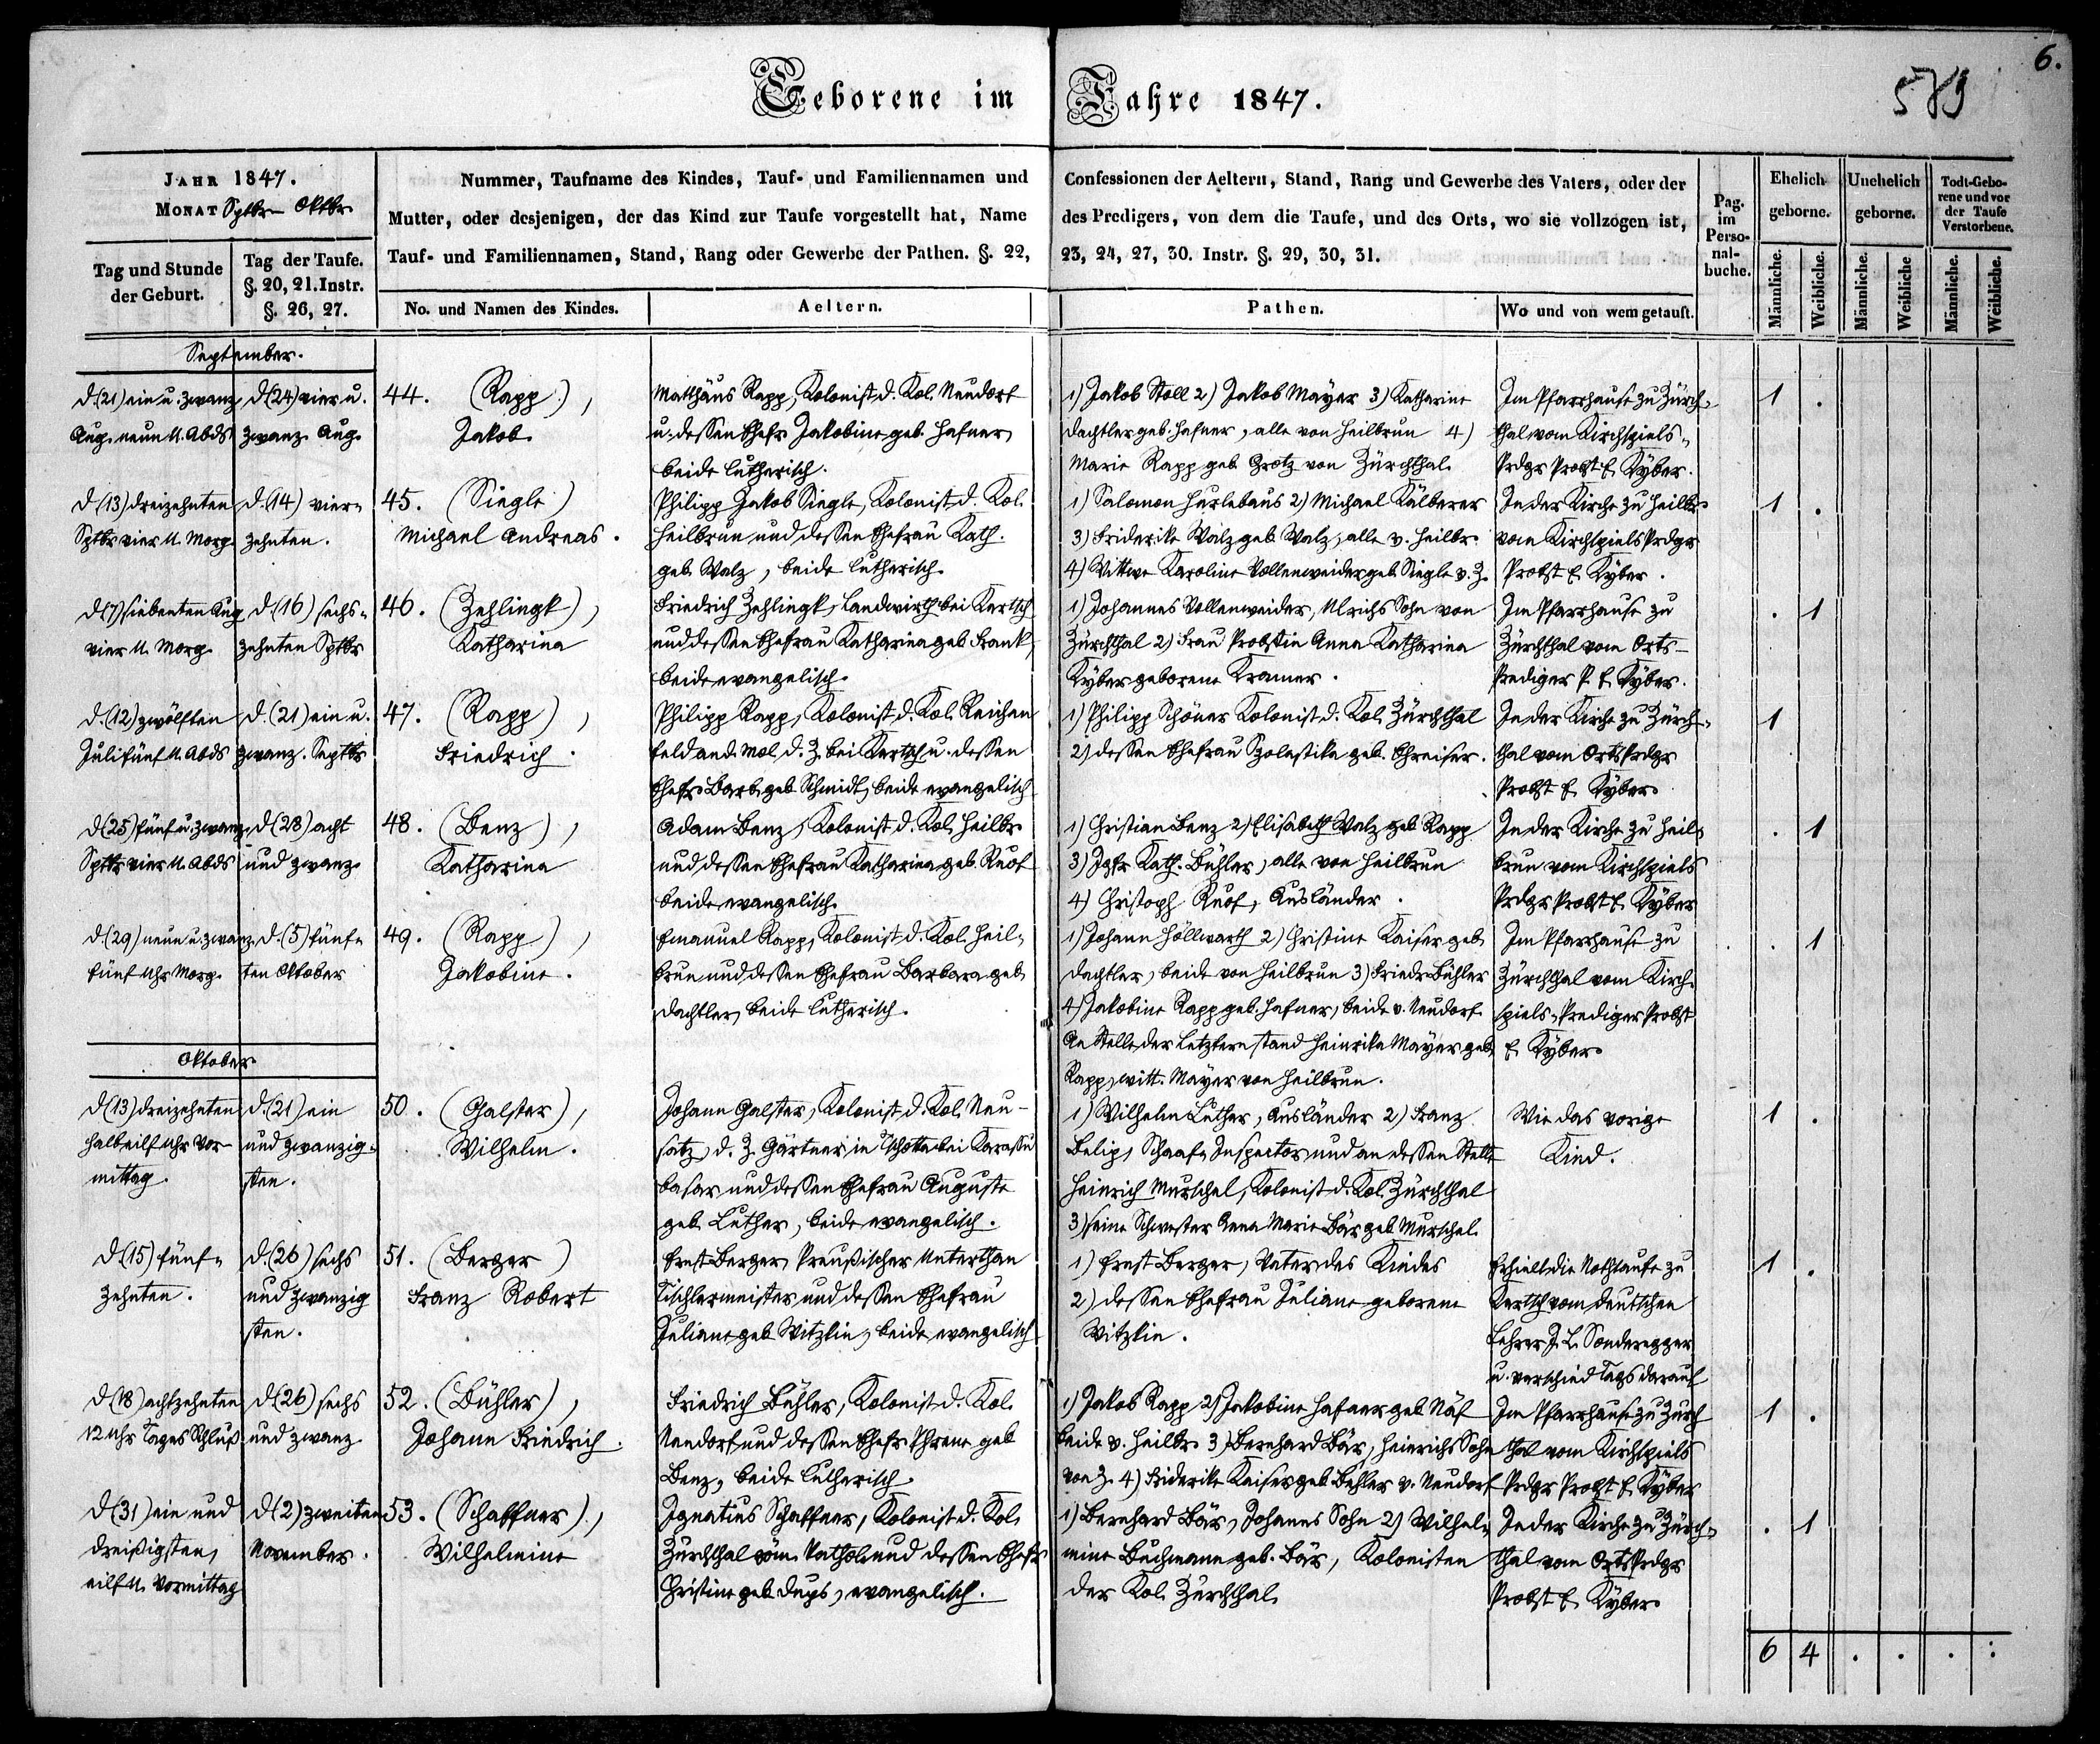 6.
589
Geborene im Jahre 1847.
JAHR 1847.
MONAT Sptbr – Oktbr
Tag und Stunde
der Geburt.
Tag der Taufe.
§. 20, 21. Instr.
§. 26, 27.
Nummer, Taufname des Kindes, Tauf- und Familiennamen und
Mutter, oder desjenigen, der das Kind zur Taufe vorgestellt hat, Name
Tauf- und Familiennamen, Stand, Rang oder Gewerbe der Pathen. §. 22,
No. und Namen des Kindes.
Aeltern.
Confessionen der Aeltern, Stand, Rang und Gewerbe des Vaters, oder der
des Predigers, von dem die Taufe, und des Orts, wo sie vollzogen ist,
23, 24, 27, 30. Instr. §. 29, 30, 31.
Pathen.
Wo und von wem getauft.
Pag.
im
Perso-
nal-
buche.
Ehelich
geborne.
Unehelich
geborne.
Todt-Gebo-
rene und vor
der Taufe
Verstorbene.
Männliche.
Weibliche.
Männliche.
Weibliche
Männliche.
Weibliche.
September.
d. (21) ein u. zwanz
Aug. neun U. Abds
d. (24) vier u.
zwanz. Aug.
44. (Rapp),
Jakob
Matthäus Rapp, Kolonist d. Kol. Neudorf
u. dessen Ehefr. Jakobine geb. Hafner
beide lutherisch.
1) Jakob Stoll 2) Jakob Mayer 3) Katharine
Dachtler geb. Hafner, alle von Heilbrun 4)
Marie Rapp geb. Grotz von Zürchthal
Im Pfarrhause zu Zürch-
thal vom Kirchspiels-
Prdgr Probst E. Kyber.
1 .
d (13) dreizehnten
Sptbr vier U. Morg.
d. (14) vier-
zehnten.
45. (Siegle)
Michael Andreas.
Philipp Jakob Siegle, Kolonist d. Kol.
Heilbrun und dessen Ehefrau Kath.
geb. Walz, beide lutherisch.
1) Salomon Hurlebaus 2) Michael Kälberer
3) Friderike Walz geb. Walz, alle v. Heilbr.
4) Wittwe Karoline Vollenweider geb. Siegle v. Z.
In der Kirche zu Heilbr.
vom Kirchspiels Prdgr
Probst E. Kyber.
1 .
d (7) siebenten Aug
vier U. Morg.
d. (16) sechs-
zehnten Sptbr
46. (Zehlingk),
Katharina
Friedrich Zehlingk, Landwirth bei Kertsch
und dessen Ehefrau Katharina geb. Frank,
beide evangelisch.
1) Johannes Vollenweider, Ulrichs Sohn von
Zürchthal 2) Frau Probstin Anna Katharina
Kyber geborene Kramer.
Im Pfarrhause zu
Zürchthal vom Orts-
Prediger P. E. Kyber.
. 1
d. (12) zwölften
Juli fünf U. Abds
d. (21) ein u.
zwanz. Septbr
47. (Rapp),
Friedrich.
Philipp Rapp, Kolonist d. Kol. Reichen
feld an d. Mol. d. Z. bei Kertsch u. dessen
Ehefr. Barb. geb. Schmidt, beide evangelisch
1) Philipp Schöner Kolonist d. Kol. Zürchthal
2) dessen Ehefrau Skolastika geb. Schreiser.
In der Kirche zu Zürch-
thal vom Orts Prdgr
Probst E. Kyber.
1
d (25) fünf u. zwanz.
Sptbr vier U. Abds
d (28) acht
und zwanz.
48. (Benz),
Katharina
Adam Benz, Kolonist d. Kol. Heilbr.
und dessen Ehefrau Katharina geb. Ruof
beide evangelisch.
1) Christian Benz 2) Elisabeth Walz geb. Rapp
3) Jgfr. Kath. Bühler, alle von Heilbrun
4) Christoph Ruof, Ausländer.
In der Kirche zu Heil-
brun vom Kirchspiels
Prdgr Probst E. Kyber
. 1
d. (29) neun u. zwanz.
fünf Uhr Morg.
d. (5) fünf-
ten Oktober
49. (Rapp),
Jakobine.
Emanuel Rapp, Kolonist d. Kol. Heil-
brun und dessen Ehefrau Barbara geb.
Dachtler, beide lutherisch.
1) Johann Höllwarth 2) Christine Kaiser geb.
Dachtler, beide von Heilbrun 3) Friedr. Bühler
4) Jakobine Rapp geb. Hafner, beide v. Neudorf.
An Stelle der Letztern stand Heinrike Mayer geb.
Rapp, Witt. Mayer von Heilbrun.
Im Pfarrhause zu
Zürchthal vom Kirch-
spiels-Prediger Probst
E. Kyber.
. 1
Oktober
d (13) dreizehnten
halb eilf Uhr Vor-
mittag.
d. (21) ein
und zwanzig-
sten.
50. (Galster),
Wilhelm.
Johann Galster, Kolonist d. Kol. Neu-
satz, d. Z. Gärtner in Tschotta bei Karassu
basar und dessen Ehefrau Auguste
geb. Luther, beide evangelisch.
1) Wilhelm Luther, Ausländer 2) Franz
Belip, Schaaf-Inspector und an dessen Stelle
Heinrich Murschel, Kolonist d. Kol. Zürchthal
3) seine Schwester Anna Marie Bär geb. Murschel.
Wie das vorige
Kind.
1 .
d (15) fünf-
zehnten.
d. (26) sechs
und zwanzig
sten.
51. (Berger)
Franz Robert
Ernst Berger, Preußischer Unterthan
Tischlermeister und dessen Ehefrau
Juliane geb. Witzkin, beide evangelisch
1) Ernst Berger, Vater des Kindes
2) dessen Ehefrau Juliane geborene
Witzkin.
Erhielt die Nothtaufe zu
Kertsch vom deutschen
Lehrer J. L. Sonderegger
u. verschied Tags darauf
1 .
d (18) achtzehnten
12 Uhr Tages Schluß
d. (26) sechs
und zwanz.
52. (Bühler),
Johann Friedrich.
Friedrich Bühler, Kolonist d. Kol.
Neudorf und dessen Ehefr. Phrene geb.
Benz, beide lutherisch.
1) Jakob Rapp 2) Jakobine Hafner geb. Näf
beide v. Heilbr. 3) Bernhard Bär, Heinrichs Sohn
von Z. 4) Friderike Kaiser geb. Bühler v. Neudorf
Im Pfarrhause zu Zürch
thal vom Kirchspiels
Prdgr Probst E. Kyber
1 .
d (31) ein und
dreißigsten,
eilf U. Vormittag
d (2) zweiten
November.
53. (Schaffner),
Wilhelmine
Ignatius Schaffner, Kolonist d. Kol.
Zürchthal röm. kathol. und dessen Ehefr.
Christine geb. Dups, evangelisch.
1) Bernhard Bär, Johanns Sohn 2) Wilhel-
mine Buchmann geb. Bär, Kolonisten
der Kol. Zürchthal
In der Kirche zu Zürch-
thal vom Orts Prdgr
Probst E. Kyber.
. 1
6 4 . . . :